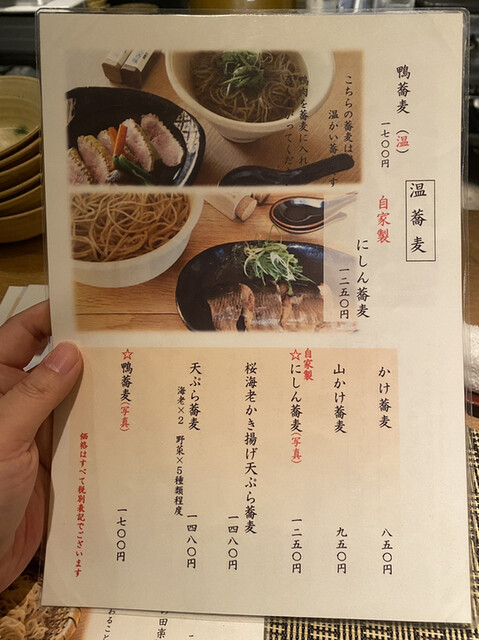 温蕎麦
鴨蕎麦(温)
一七〇〇円
こちらの蕎麦は
温かい蕎麦です
鴨肉を蕎麦に入れ
自家製
にしん蕎麦
一二五〇円
かけ蕎麦
八五〇円
山かけ蕎麦
九五〇円
自家製
☆にしん蕎麦(写真)
一二五〇円
桜海老かき揚げ天ぷら蕎麦
一四八〇円
天ぷら蕎麦
海老×2 野菜×5種類程度
一四八〇円
☆鴨蕎麦(写真)
一七〇〇円
価格はすべて税別表記でございます